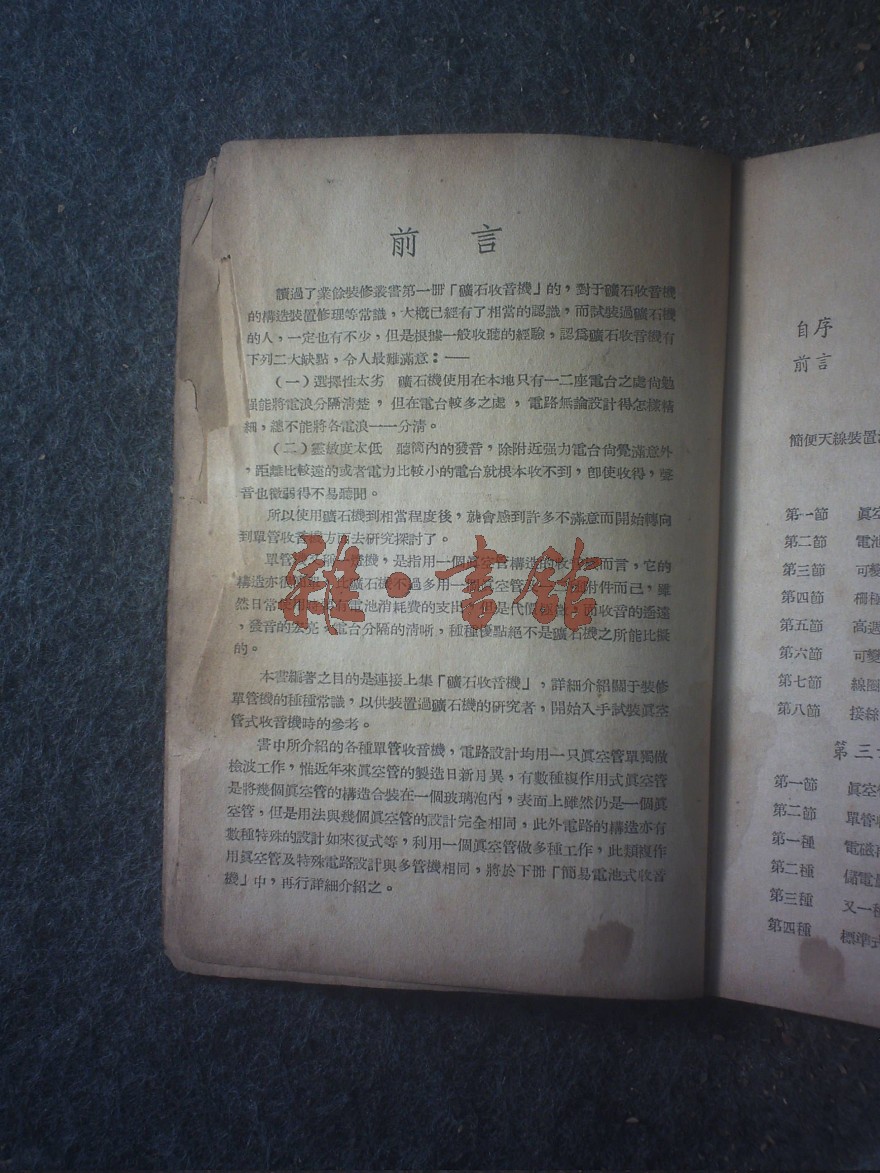 前言
讀過了業餘裝修叢書第一冊「礦石收音機」的，對于礦石收音機
的構造裝置修理等常識，大概已經有了相當的認識，而試裝過礦石機
的人，一定也有不少，但是根據一般收聽的經驗，認爲礦石收音機有
下列二大缺點，令人最難滿意：——
（一）選擇性太劣　礦石機使用在本地只有一二座電台之處尙勉
强能將電浪分隔清楚，但在電台較多之處，電路無論設計得怎樣精
細，總不能將各電浪一一分清。
（二）靈敏度太低　聽筒內的發音，除附近强力電台尙覺滿意外
，距離比較遠的或者電力比較小的電台就根本收不到，卽使收得，聲
音也微弱得不易聽聞。
所以使用礦石機到相當程度後，就會感到許多不滿意而開始轉向
到單管收音機方面去研究探討了。
單管機亦稱一燈機，是指用一個眞空管構造的收音機而言，它的
構造亦很簡單，比礦石機不過多用一個眞空管及附件而已，雖
然日常使用時需有電池消耗費的支出，但是代價，而收音的遙遠
，發音的宏亮，電台分隔的清晰，種種優點絕不是礦石機之所能比擬
的。
本書編著之目的是連接上集「礦石收音機」，詳細介紹關于裝修
單管機的種種常識，以供裝置過礦石機的研究者，開始入手試裝眞空
管式收音機時的參考。
書中所介紹的各種單管收音機，電路設計均用一只眞空管單獨做
檢波工作，惟近年來眞空管的製造日新月異，有數種複作用式眞空管
是將幾個眞空管的構造合裝在一個玻璃泡內，表面上雖然仍是一個眞
空管，但是用法與幾個眞空管的設計完全相同，此外電路的構造亦有
數種特殊的設計如來復式等，利用一個眞空管做多種工作，此類複作
用眞空管及特殊電路設計與多管機相同，將於下冊「簡易電池式收音
機」中，再行詳細介紹之。
雜·書館
自序
前言
簡便天線裝置
第一節　眞空
第二節　電池
第三節　可變
第四節　柵極
第五節　高週
第六節　可變
第七節　線圈
第八節　接線
第三
第一節　眞空管
第二節　單管收
第一種　電磁再
第二種　儲電
第三種　又一種
第四種　標準式